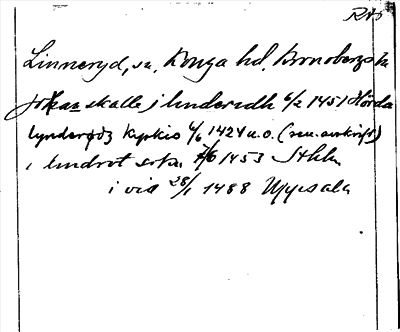 RAS
Linneryd, sn, Konga hd, Kronobergs län
jökanskalle j linderudh 6/2 1451 Hörda
lynderødz kyrkio 4/6 1424 u.o. (sen. avskrift)
i lindrot sokn 7/6 1453 Sthlm
i vid 28/1 1488 Uppsala